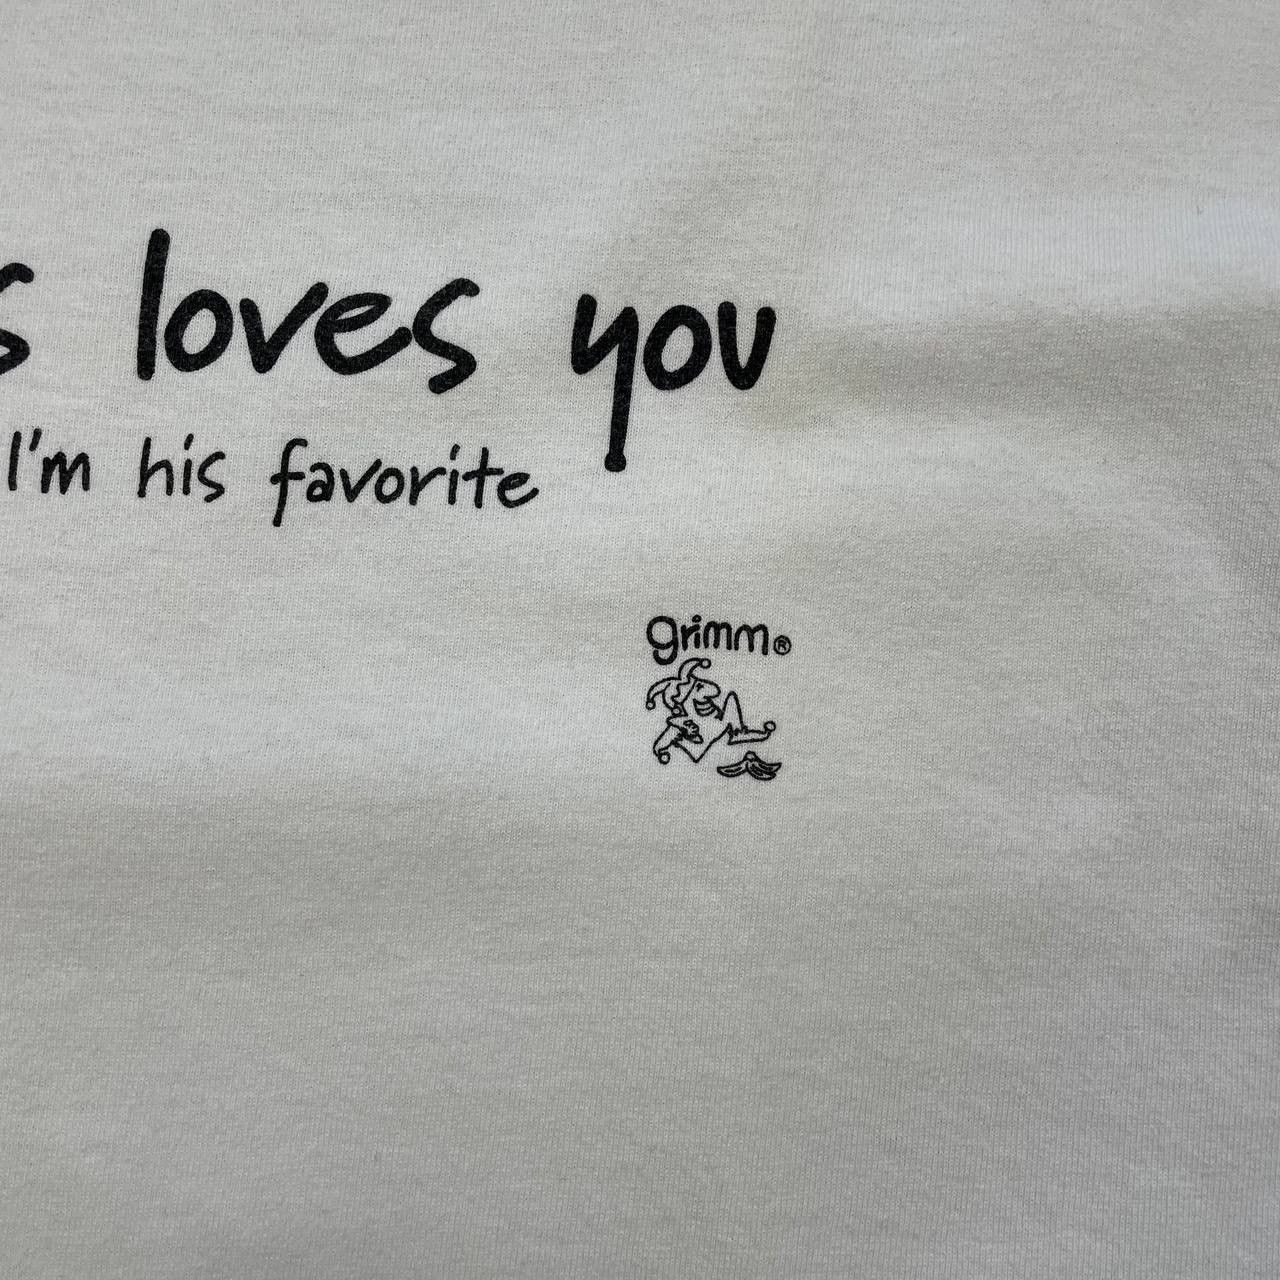 s loves you
I'm his favorite
grimm®